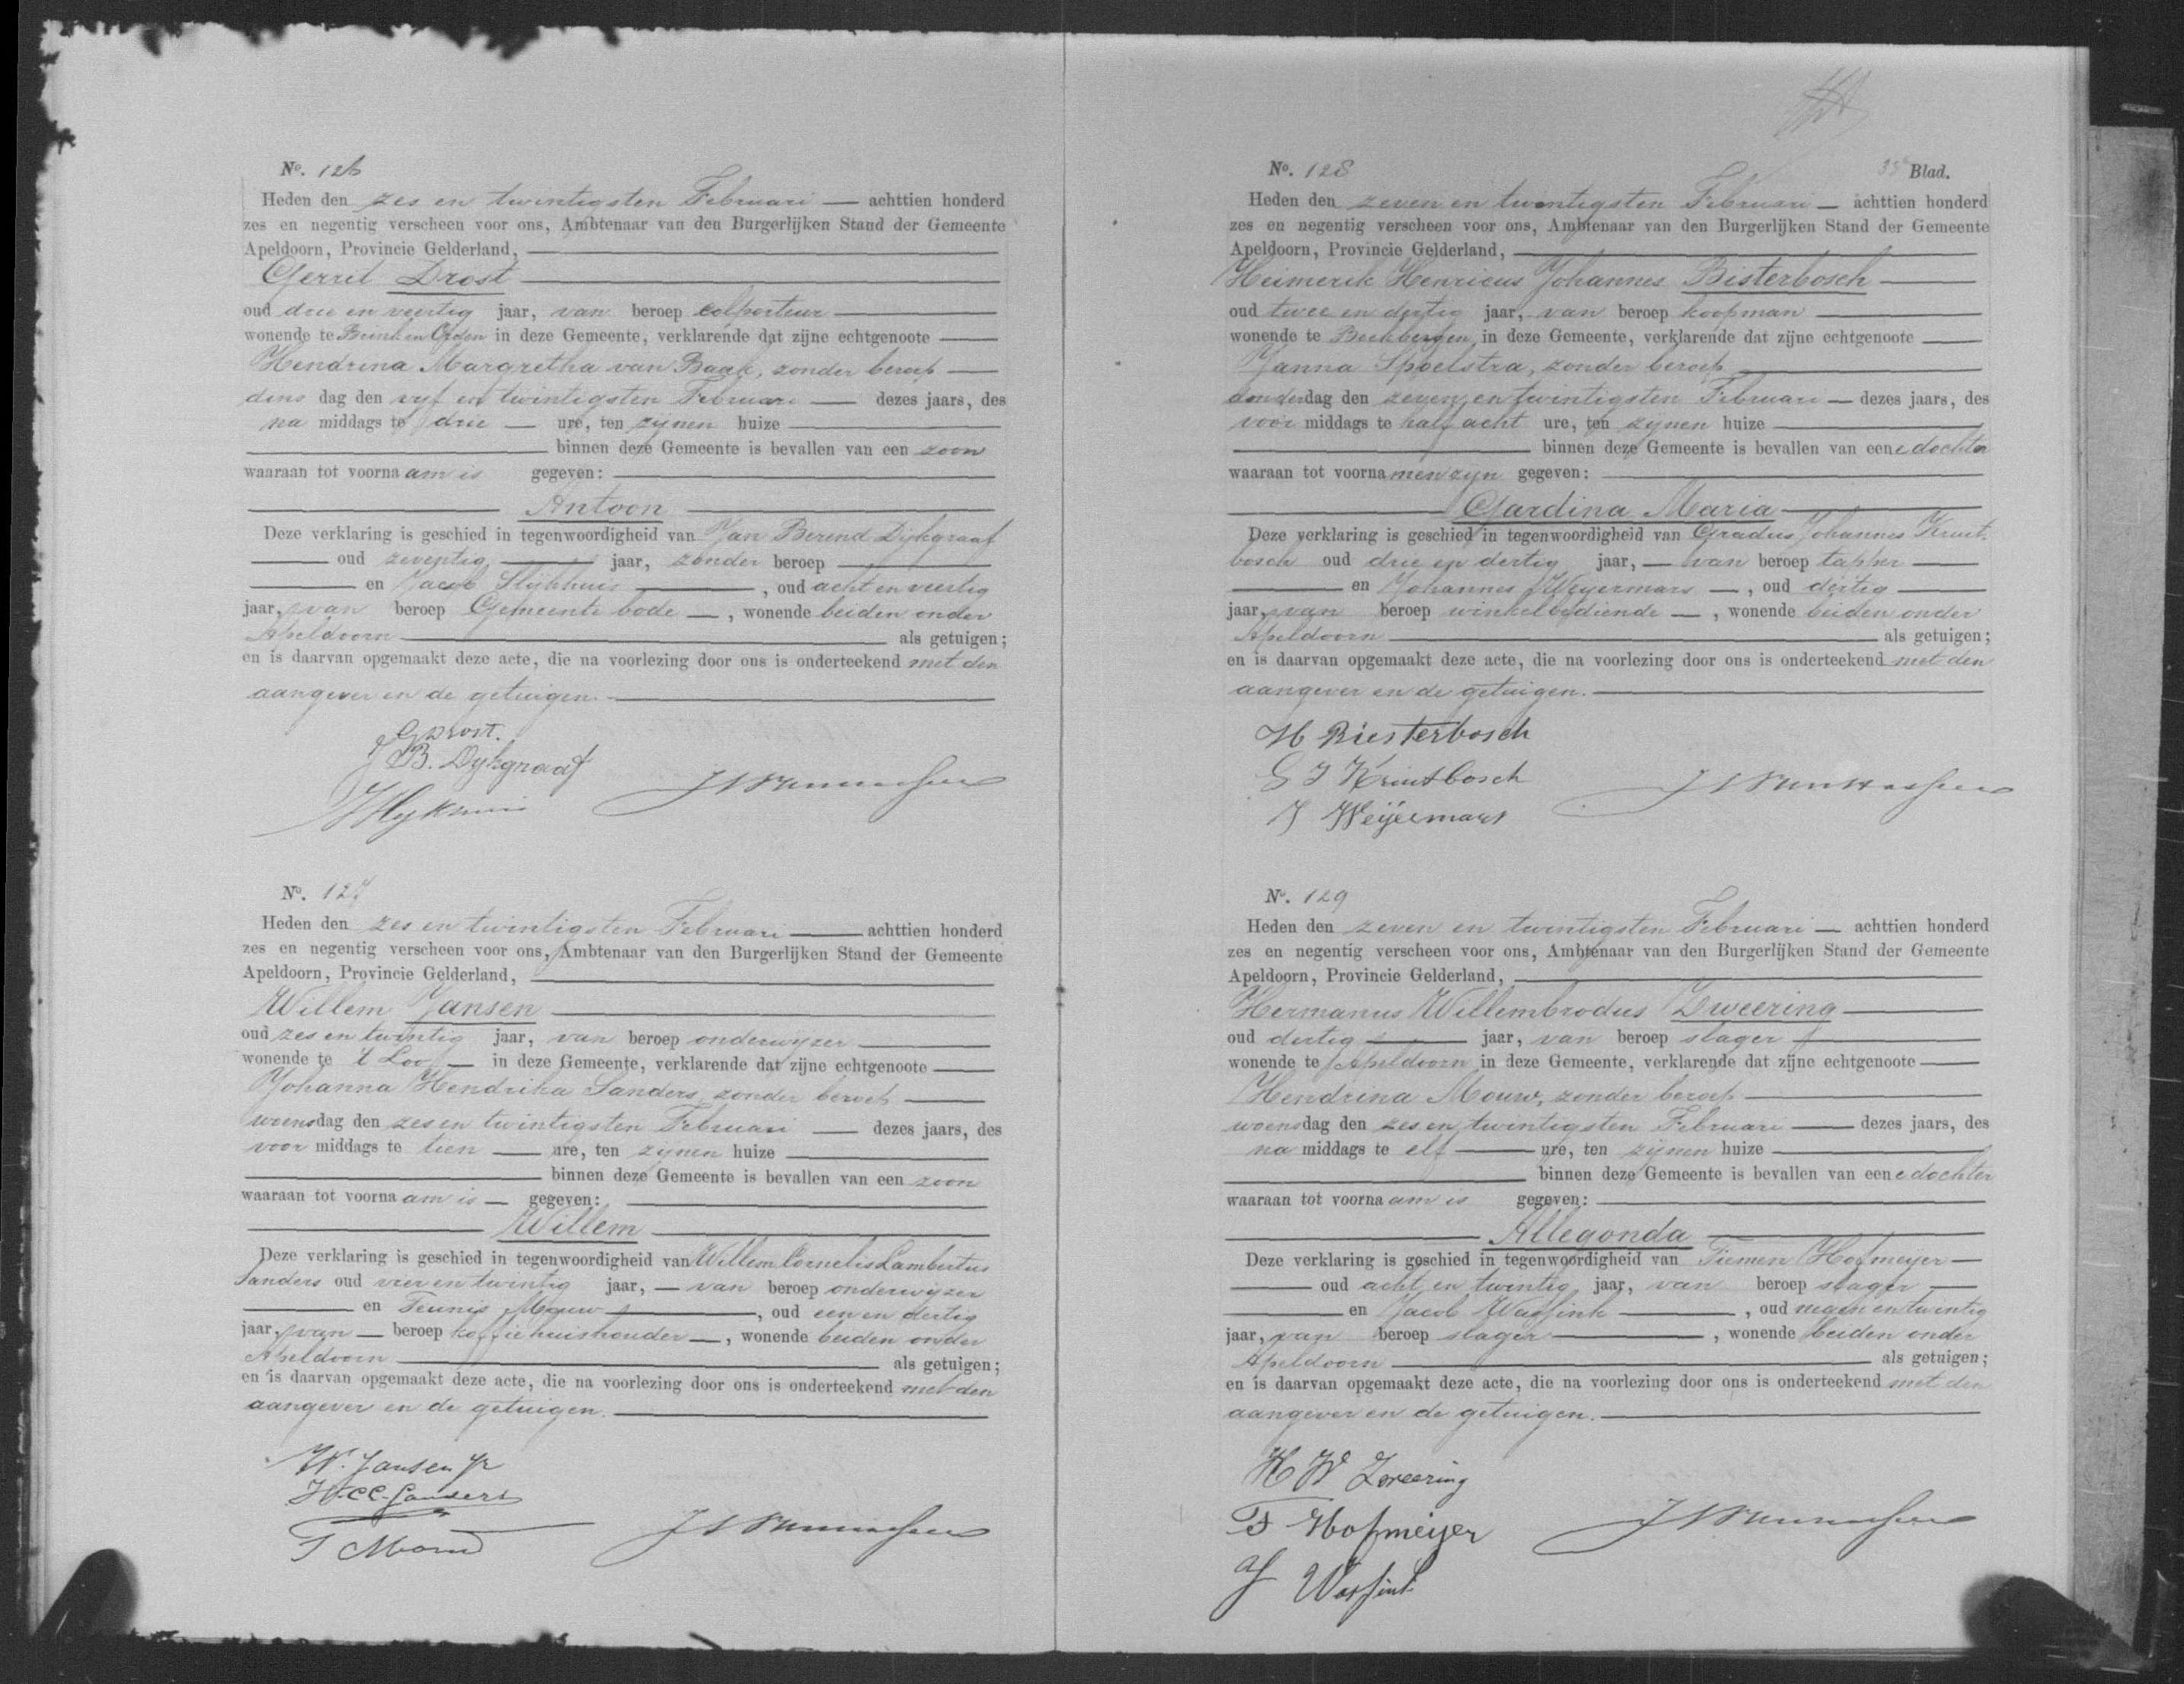 No. 126
Heden den zes en twintigsten Februari achttien honderd
zes en negentig verscheen voor ons, Ambtenaar van den Burgerlijken Stand der Gemeente
Apeldoorn, Provincie Gelderland,
Gerrit Drost
oud drie en veertig jaar, van beroep colporteur
wonende te Brink en Orden in deze Gemeente, verklarende dat zijne echtgenoote
Hendrina Margretha van Baak, zonder beroep
dinsdag den vijf en twintigsten Februari dezes jaars, des
na middags te drie ure, ten zijnen huize
binnen deze Gemeente is bevallen van een zoon
waaraan tot voornaam is gegeven:
Antoon
Deze verklaring is geschied in tegenwoordigheid van Jan Berend Dijkgraaf
oud zeventig jaar, zonder beroep
en Jacob Slijkhuis, oud acht en veertig
jaar, van beroep Gemeente bode, wonende beiden onder
Apeldoorn als getuigen;
en is daarvan opgemaakt deze acte, die na voorlezing door ons is onderteekend met den
aangever en de getuigen.
G Drost.
J B. Dykgraaf
No. 127
Heden den zes en twintigsten Februari achttien honderd
zes en negentig verscheen voor ons, Ambtenaar van den Burgerlijken Stand der Gemeente
Apeldoorn, Provincie Gelderland,
Willem Jansen
oud zes en twintig jaar, van beroep onderwijzer
wonende te 't Loo in deze Gemeente, verklarende dat zijne echtgenoote
Johanna Hendrika Sanders, zonder beroep
woensdag den zes en twintigsten Februari dezes jaars, des
voor middags te tien ure, ten zijnen huize
binnen deze Gemeente is bevallen van een zoon
waaraan tot voornaam is gegeven:
Willem
Deze verklaring is geschied in tegenwoordigheid van Willem Cornelis Lambertus
Sanders oud vier en twintig jaar, van beroep onderwijzer
en Teunis Mouw, oud een en dertig
jaar, van beroep koffiehuishouder, wonende beiden onder
Apeldoorn als getuigen;
en is daarvan opgemaakt deze acte, die na voorlezing door ons is onderteekend met den
aangever en de getuigen.
W. Jansen Jr
Sanders
T Mouw
No. 128
35e Blad.
Heden den zeven en twintigsten Februari achttien honderd
zes en negentig verscheen voor ons, Ambtenaar van den Burgerlijken Stand der Gemeente
Apeldoorn, Provincie Gelderland,
Heimerik Henricus Johannes Bisterbosch
oud twee en dertig jaar, van beroep koopman
wonende te Beekbergen, in deze Gemeente, verklarende dat zijne echtgenoote
Janna Spoelstra, zonder beroep
donderdag den zeven en twintigsten Februari dezes jaars, des
voor middags te half acht ure, ten zijnen huize
binnen deze Gemeente is bevallen van eene dochter
waaraan tot voornamen zijn gegeven:
Gardina Maria
Deze verklaring is geschied in tegenwoordigheid van Gradus Johannes Kruit-
bosch oud drie en dertig jaar, van beroep tapper
en Johannes Weyermars, oud dertig
jaar, van beroep winkelbediende, wonende beiden onder
Apeldoorn als getuigen;
en is daarvan opgemaakt deze acte, die na voorlezing door ons is onderteekend met den
aangever en de getuigen.
H Biesterbosch
G J Kruitbosch
J Weijermars
No. 129
Heden den zeven en twintigsten Februari achttien honderd
zes en negentig verscheen voor ons, Ambtenaar van den Burgerlijken Stand der Gemeente
Apeldoorn, Provincie Gelderland,
Hermanus Willembrodus Zweering
oud dertig jaar, van beroep slager
wonende te Apeldoorn in deze Gemeente, verklarende dat zijne echtgenoote
Hendrina Mouw, zonder beroep
woensdag den zes en twintigsten Februari dezes jaars, des
na middags te elf ure, ten zijnen huize
binnen deze Gemeente is bevallen van eene dochter
waaraan tot voornaam is gegeven:
Allegonda
Deze verklaring is geschied in tegenwoordigheid van Tiemen Hofmeyer
oud acht en twintig jaar, van beroep slager
en Jacob Wassink, oud negen en twintig
jaar, van beroep slager, wonende beiden onder
Apeldoorn als getuigen;
en is daarvan opgemaakt deze acte, die na voorlezing door ons is onderteekend met den
aangever en de getuigen.
H W Zweering
T Hofmeijer
J Wassink